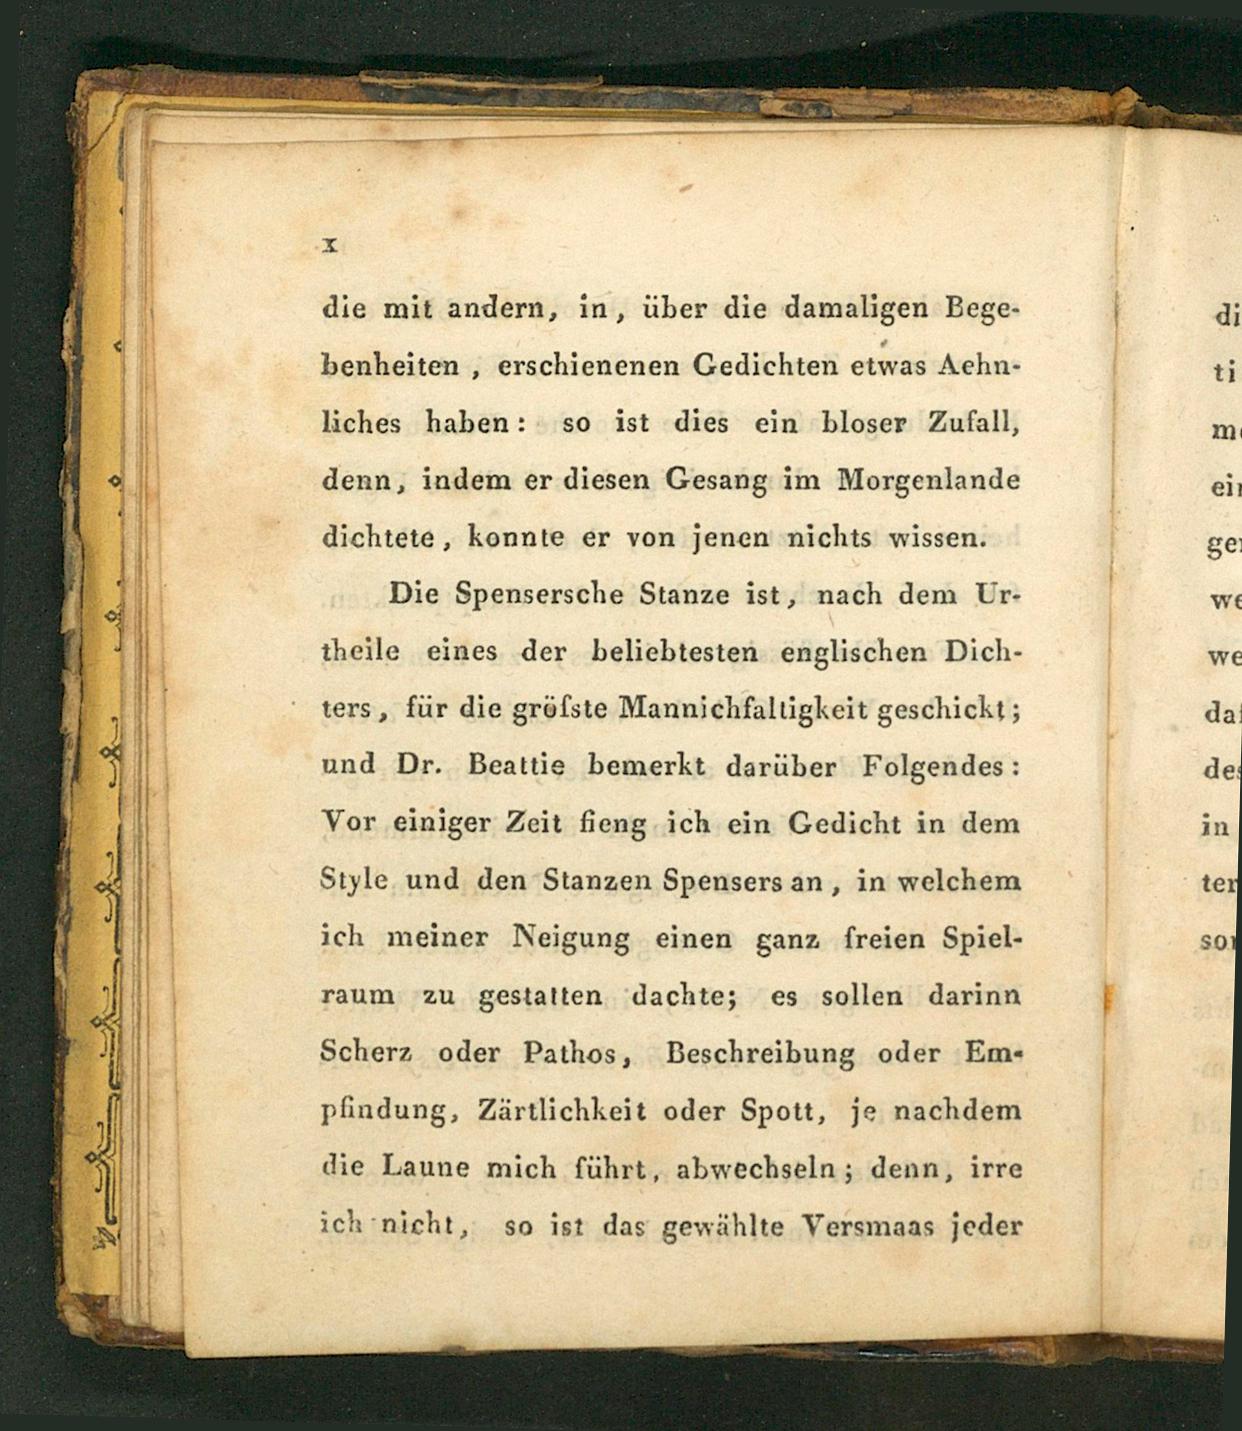 x
die mit andern, in, über die damaligen Bege-
benheiten, erschienenen Gedichten etwas Aehn-
liches haben: so ist dies ein bloser Zufall,
denn, indem er diesen Gesang im Morgenlande
dichtete, konnte er von jenen nichts wissen.
Die Spensersche Stanze ist, nach dem Ur-
theile eines der beliebtesten englischen Dich-
ters, für die gröſste Mannichfaltigkeit geschickt;
und Dr. Beattie bemerkt darüber Folgendes:
Vor einiger Zeit fieng ich ein Gedicht in dem
Style und den Stanzen Spensers an, in welchem
ich meiner Neigung einen ganz freien Spiel-
raum zu gestatten dachte; es sollen darinn
Scherz oder Pathos, Beschreibung oder Em-
pfindung, Zärtlichkeit oder Spott, je nachdem
die Laune mich führt, abwechseln; denn, irre
ich nicht, so ist das gewählte Versmaas jeder